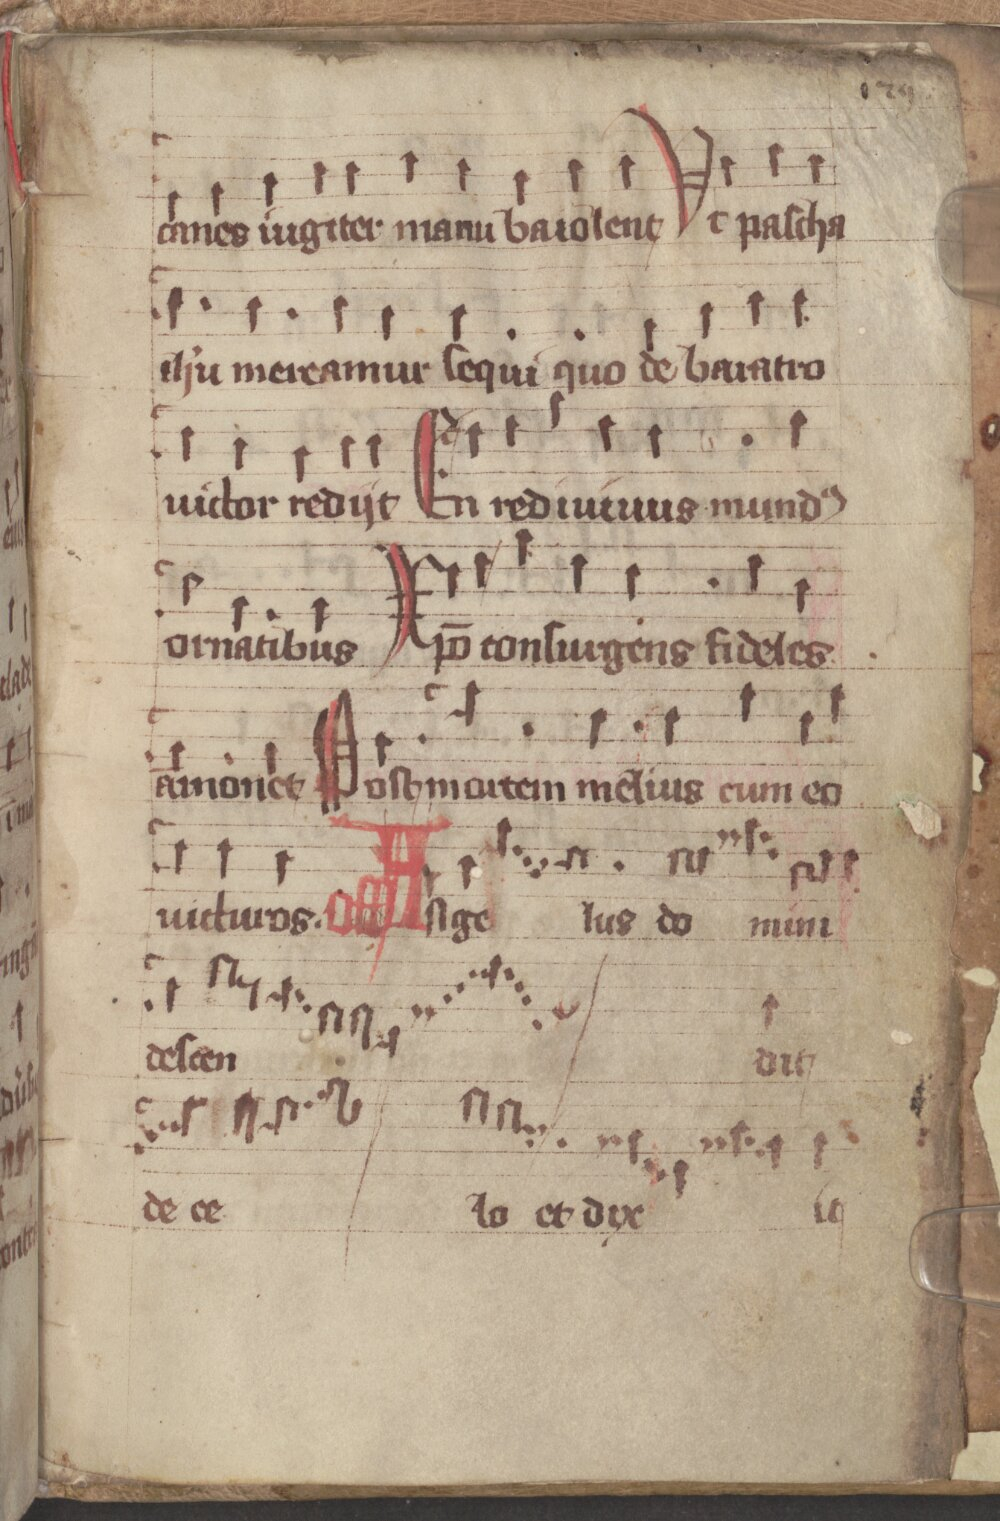 139
canes iugiter manu baiolent Vt pascha
ihu mereamur sequi quo de baratro
victor redijt En rediuiuus mundꝰ
ornatibus Xpō consurgens fideles
āmonet Post mortem melius cum eo
victuros. A͞ngelus domini
descendit
de celo et dixit